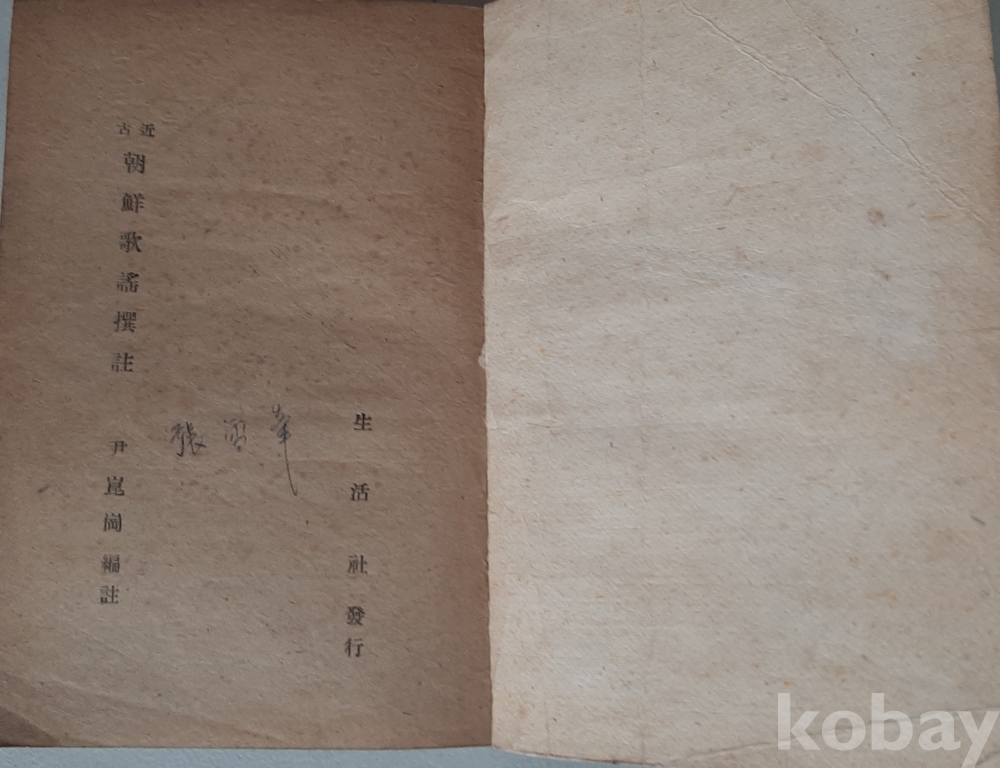 生活社發行
張
近古朝鮮歌謠撰註 尹崑崗編註
kobay